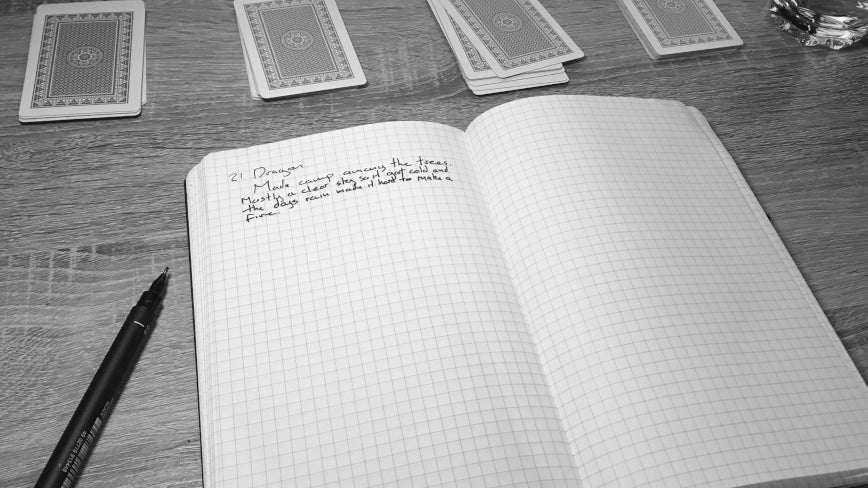 21 Dragon
Made camp among the trees.
Mostly a clear sky so it got cold and
the days rain made it hard to make a
fire.